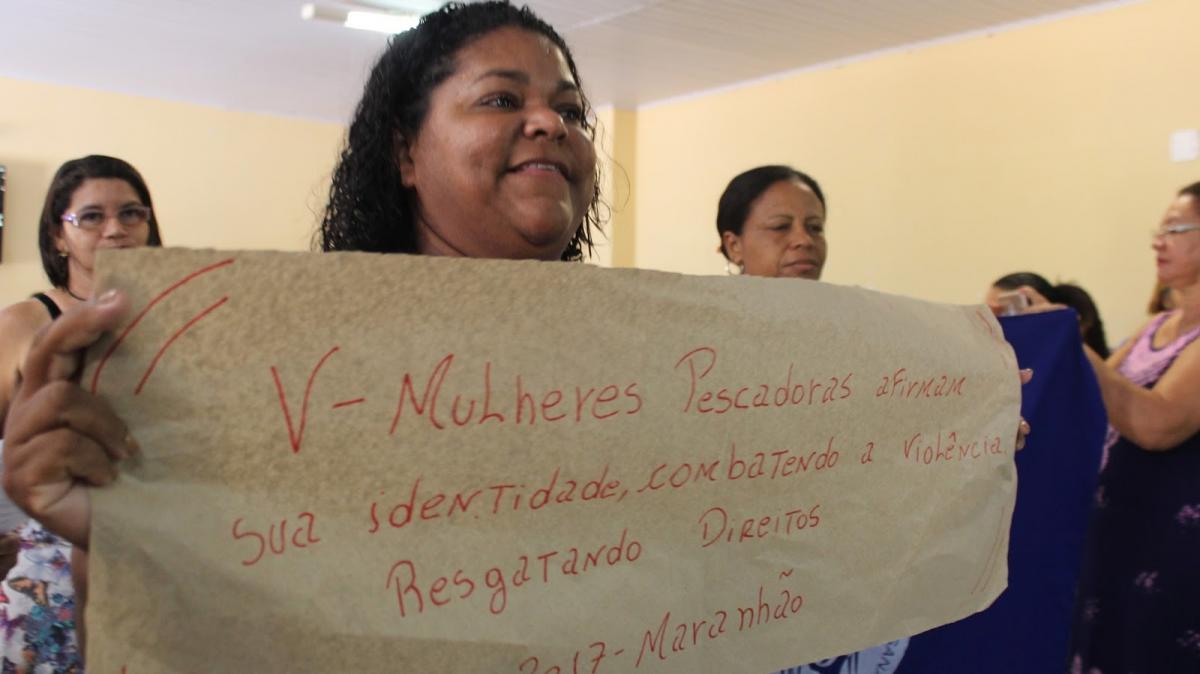 V - Mulheres Pescadoras afirmam
sua identidade, combatendo a violência
Resgatando Direitos
2017 - Maranhão